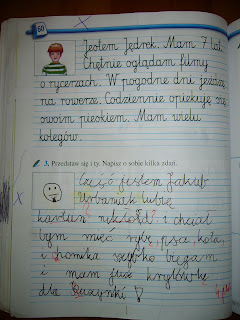 60
Jestem Jędrek. Mam 7 lat.
Chętnie oglądam filmy
o rycerzach. W pogodne dni jeżdżę
na rowerze. Codziennie opiekuję się
swoim pieskiem. Mam wielu
kolegów.
3. Przedstaw się i ty. Napisz o sobie kilka zdań.
Cześć jestem Jakub
Urbaniak lubię
i chciał
bym mieć rybę, psa, kota,
i chomika szybko biegam
i mam
dla